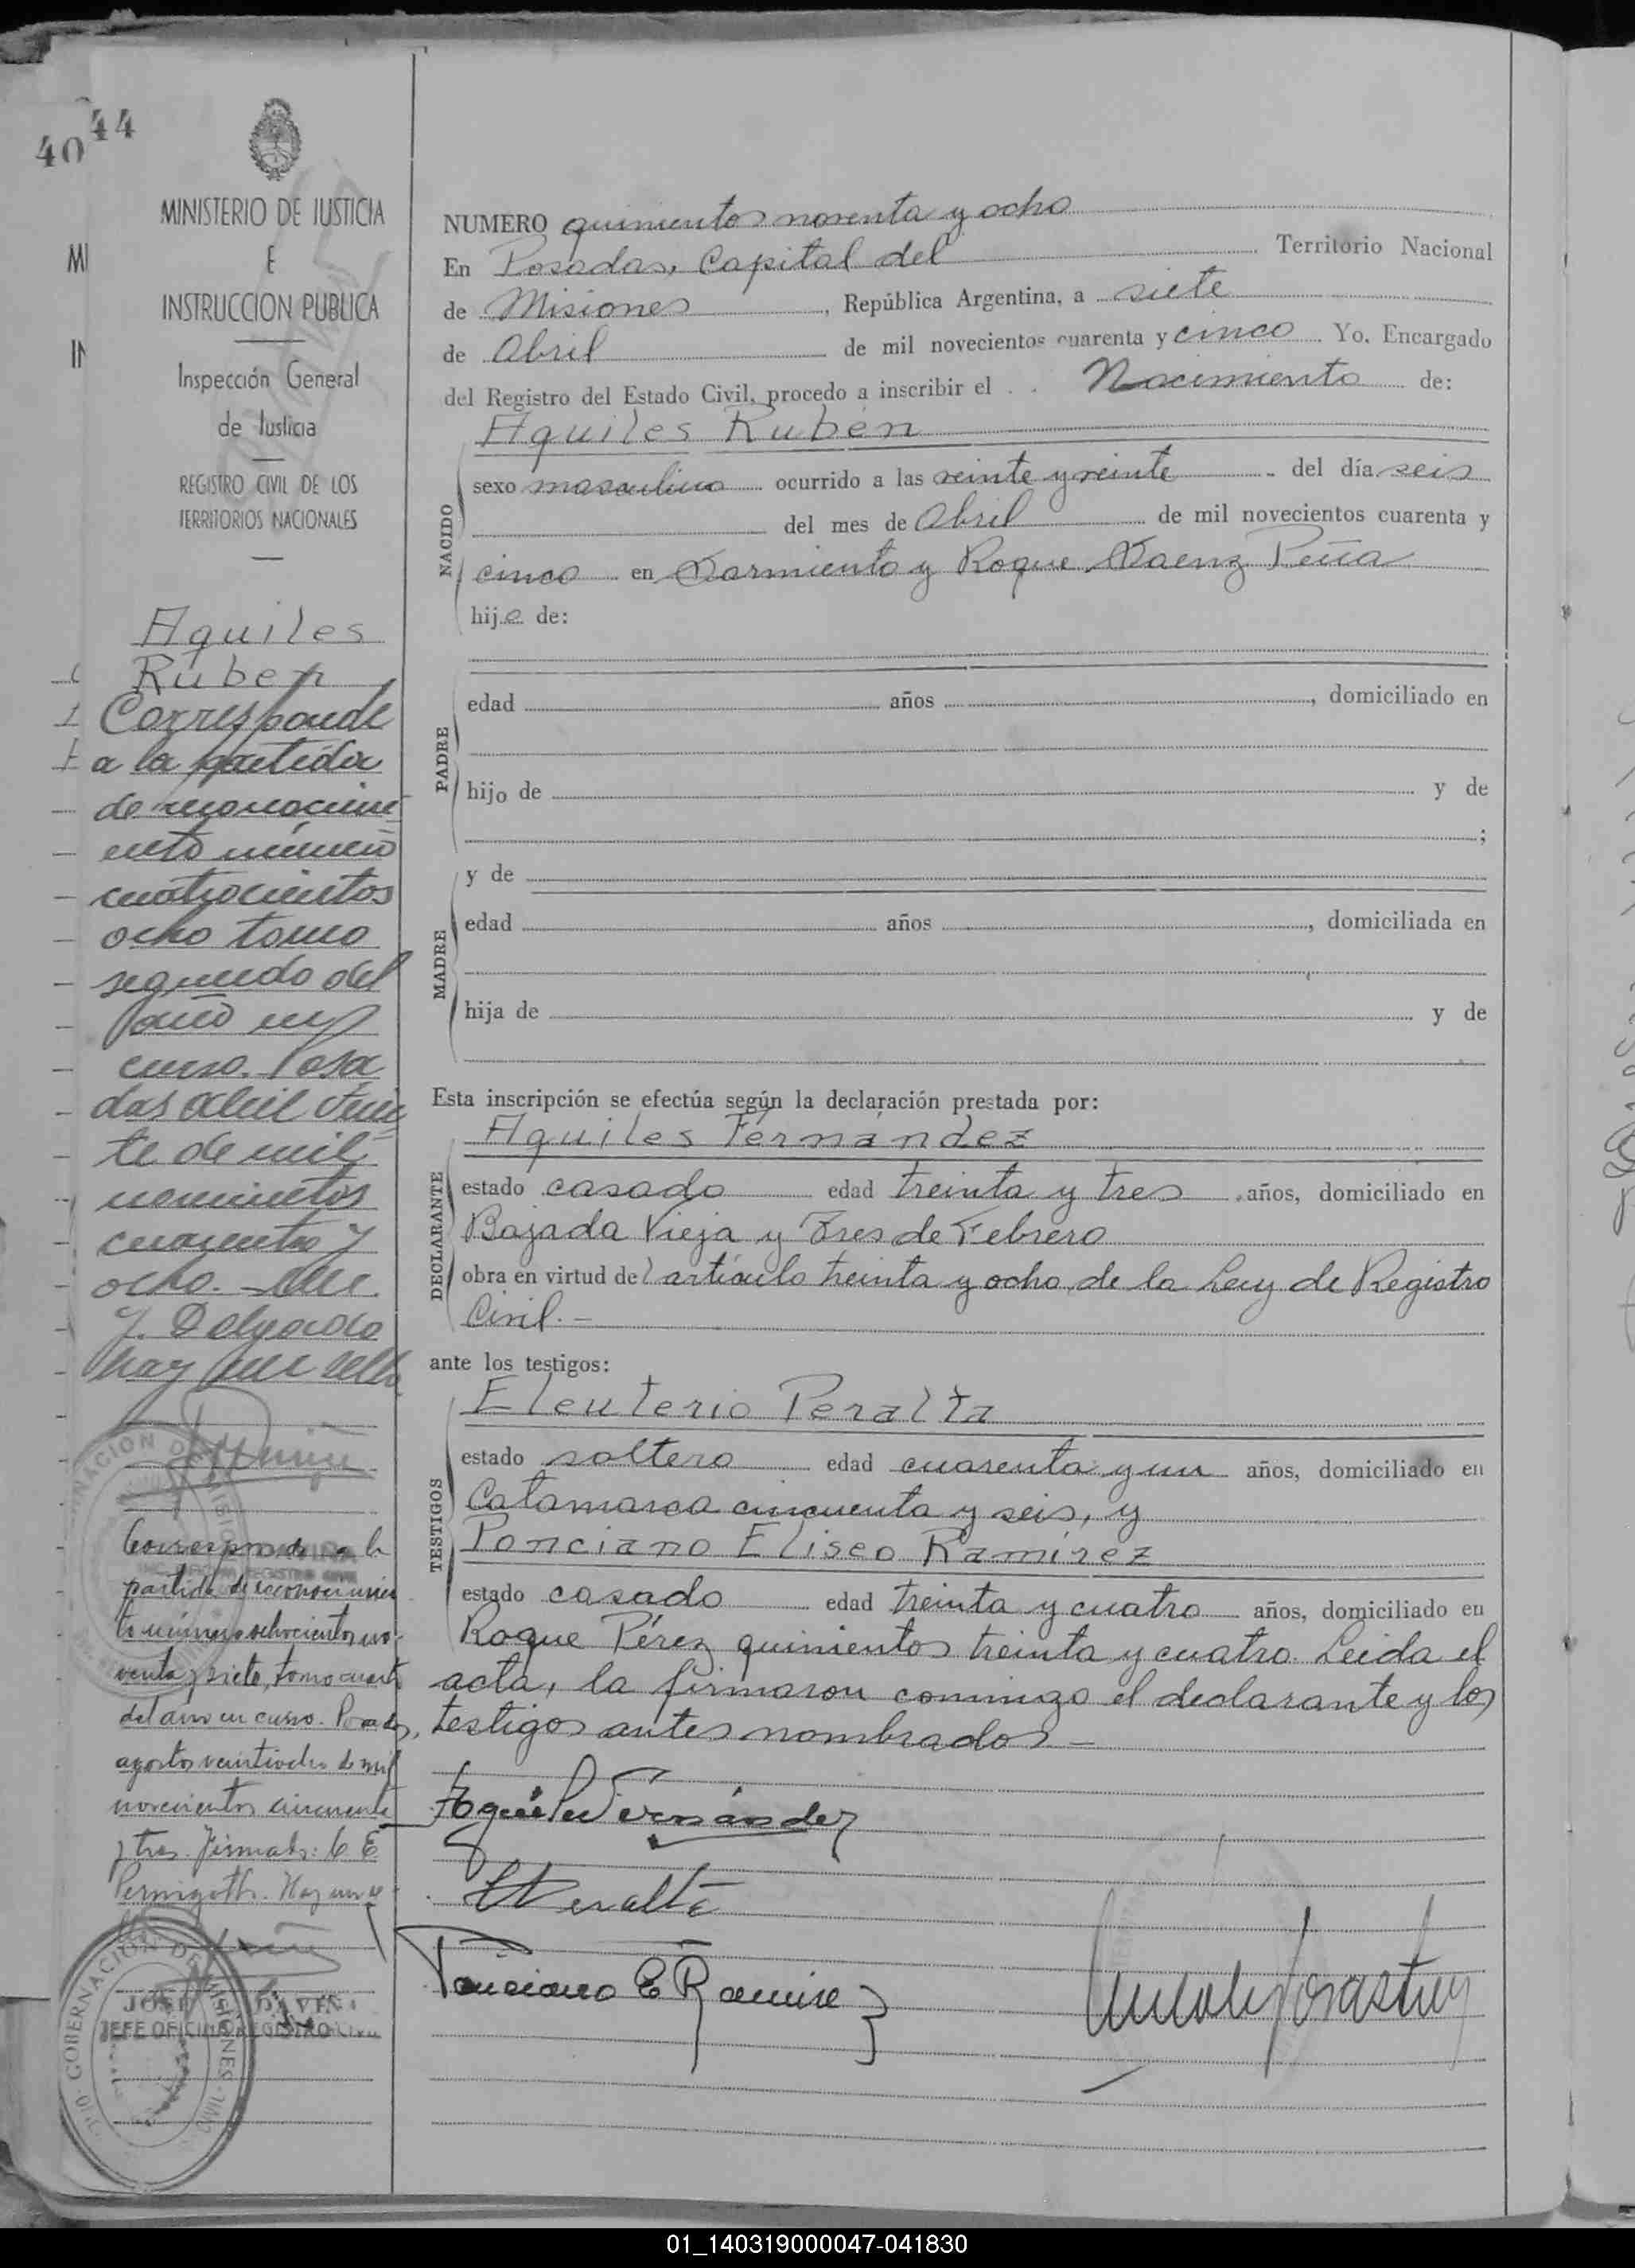 40
44
MINISTERIO DE JUSTICIA
E
INSTRUCCION PUBLICA
Inspección General
de Justicia
REGISTRO CIVIL DE LOS
TERRITORIOS NACIONALES
Aquiles
Ruben
Corresponde
a la partida
de reconocimi
ento número
cuatrocientos
ocho tomo
segundo del
año en
curso. Posa
das abril vein
te de mil
novecientos
cuarenta y
ocho.
J. Delgado
hay un sello
Corresponde a la
partida de reconocimien
to número ochocientos no
venta y siete, tomo cuarto
del año en curso. Posadas,
agosto veintiocho de mil
novecientos cincuenta
y tres. Firmado: C. E.
Pernigotti. Hay un
GOBERNACION DE MISIONES
JOSE DAVIÑA
JEFE OFICINA REGISTRO CIVIL
NUMERO quinientos noventa y ocho
En Posadas, Capital del Territorio Nacional
de Misiones, República Argentina, a siete
de Abril de mil novecientos cuarenta y cinco Yo, Encargado
del Registro del Estado Civil, procedo a inscribir el Nacimiento de:
Aquiles Rubén
NACIDO
sexo masculino ocurrido a las veinte y veinte del día seis
del mes de Abril de mil novecientos cuarenta y
cinco en Sarmiento y Roque Saenz Peña
hijo de:
PADRE
edad años , domiciliado en
hijo de y de
;
y de
MADRE
edad años , domiciliada en
hija de y de
Esta inscripción se efectúa según la declaración prestada por:
Aquiles Fernández
DECLARANTE
estado casado edad treinta y tres años, domiciliado en
Bajada Vieja y Tres de Febrero
obra en virtud del artículo treinta y ocho de la Ley de Registro
Civil.-
ante los testigos:
Eleuterio Peralta
TESTIGOS
estado soltero edad cuarenta y un años, domiciliado en
Catamarca cincuenta y seis, y
Ponciano Eliseo Ramírez
estado casado edad treinta y cuatro años, domiciliado en
Roque Pérez quinientos treinta y cuatro. Leida el
acta, la firmaron conmigo el declarante y los
testigos antes nombrados.-
Aquiles Fernández
E Peralta
Ponciano E Ramirez
01_140319000047-041830